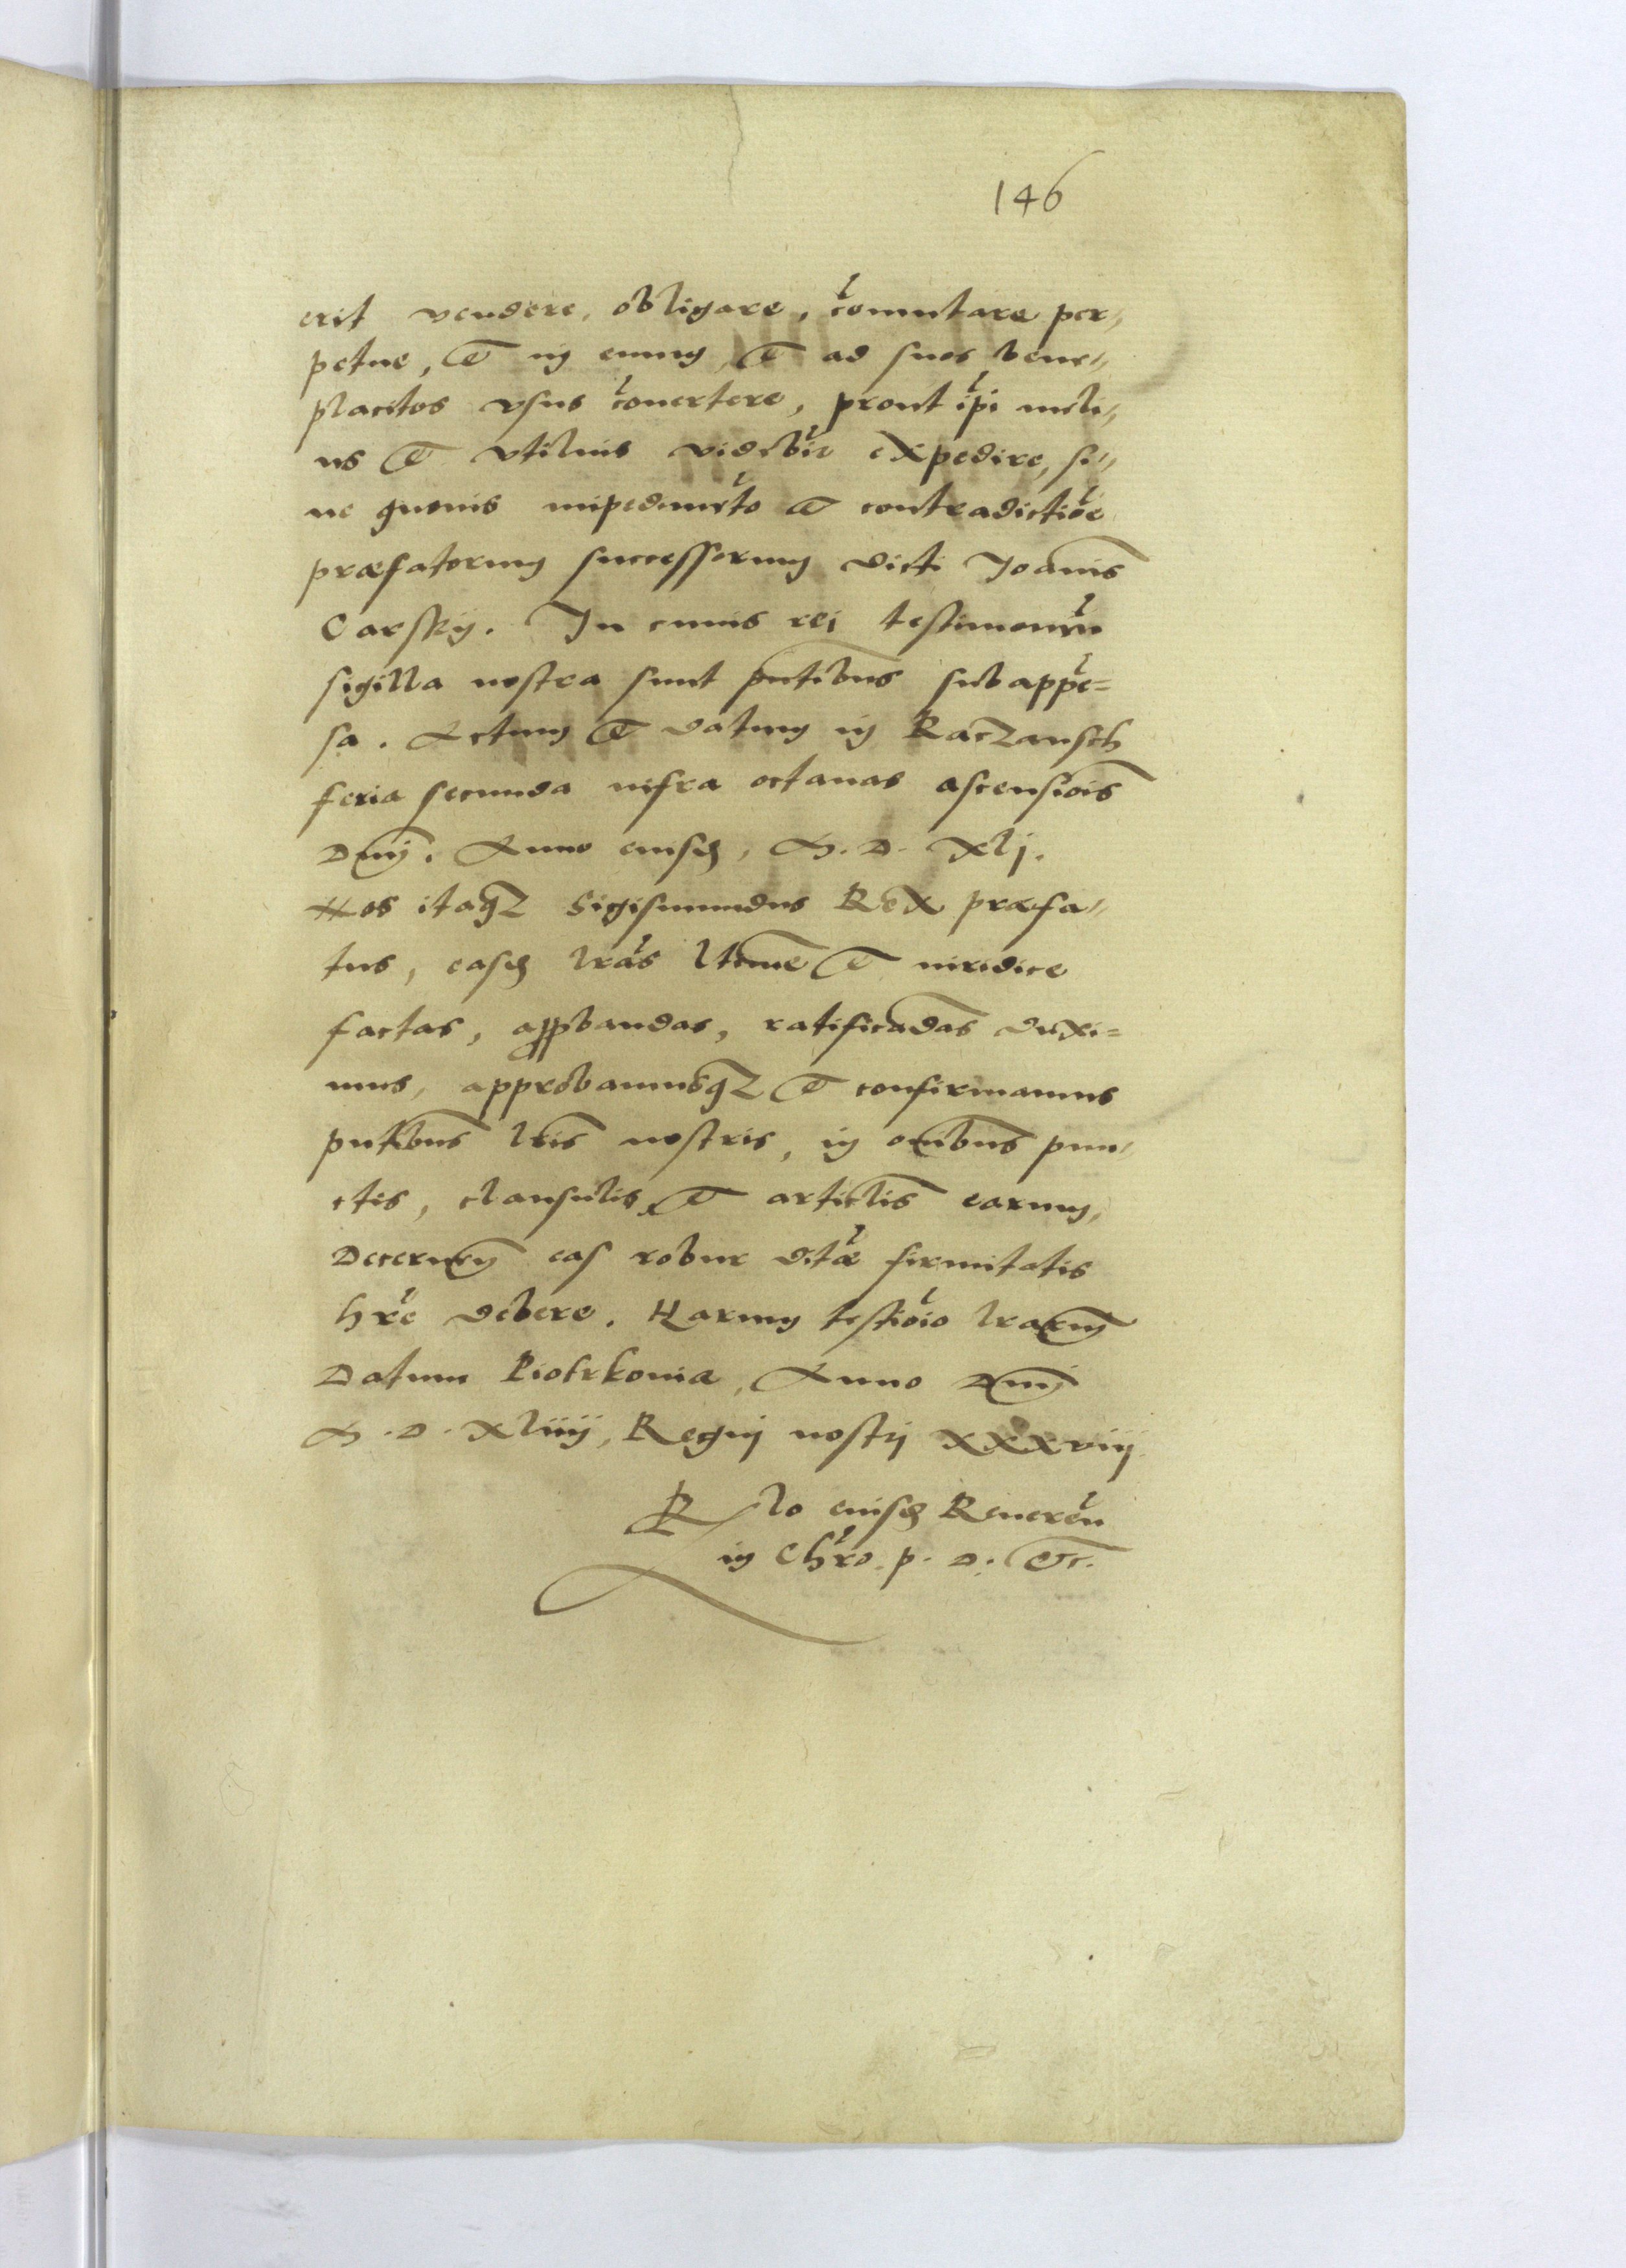 146
erit vendere, obligare, comutare per-
petue, et in euum, et ad suos bene-
placitos vsus couertere, prout ipi meli-
us et vtilius videbit expedire, si-
ne quouis impedimeto et contradictioe
præfatorum successorum dicti Joanis
Carskÿ. In cuius rei testimoniu
sigilla nostra sunt pntibus subappe=
sa. Actum et datum in Racząnsch
feria secunda infra octauas ascensiois
Dnj. Anno eiusd, M. D. xlj.
Nos itaqz Sigismundus Rex præfa-
tus, easd lras ltime et iuridice
factas, approbandas, ratificadas duxi=
mus, approbamusqz et confirmamus
pntibus lris nostris, in omibus pun-
ctis, clausulis, et articlis earum,
Decernen eas robur ditæ firmitatis
hre debere. Harum testioio lrarum
Datum Piotrkouiæ, Anno Dnj
M. D. xliiij, Regnj nostrj xxxviij
Rlo eiusd Reueren
in Chro. p. D. etc.